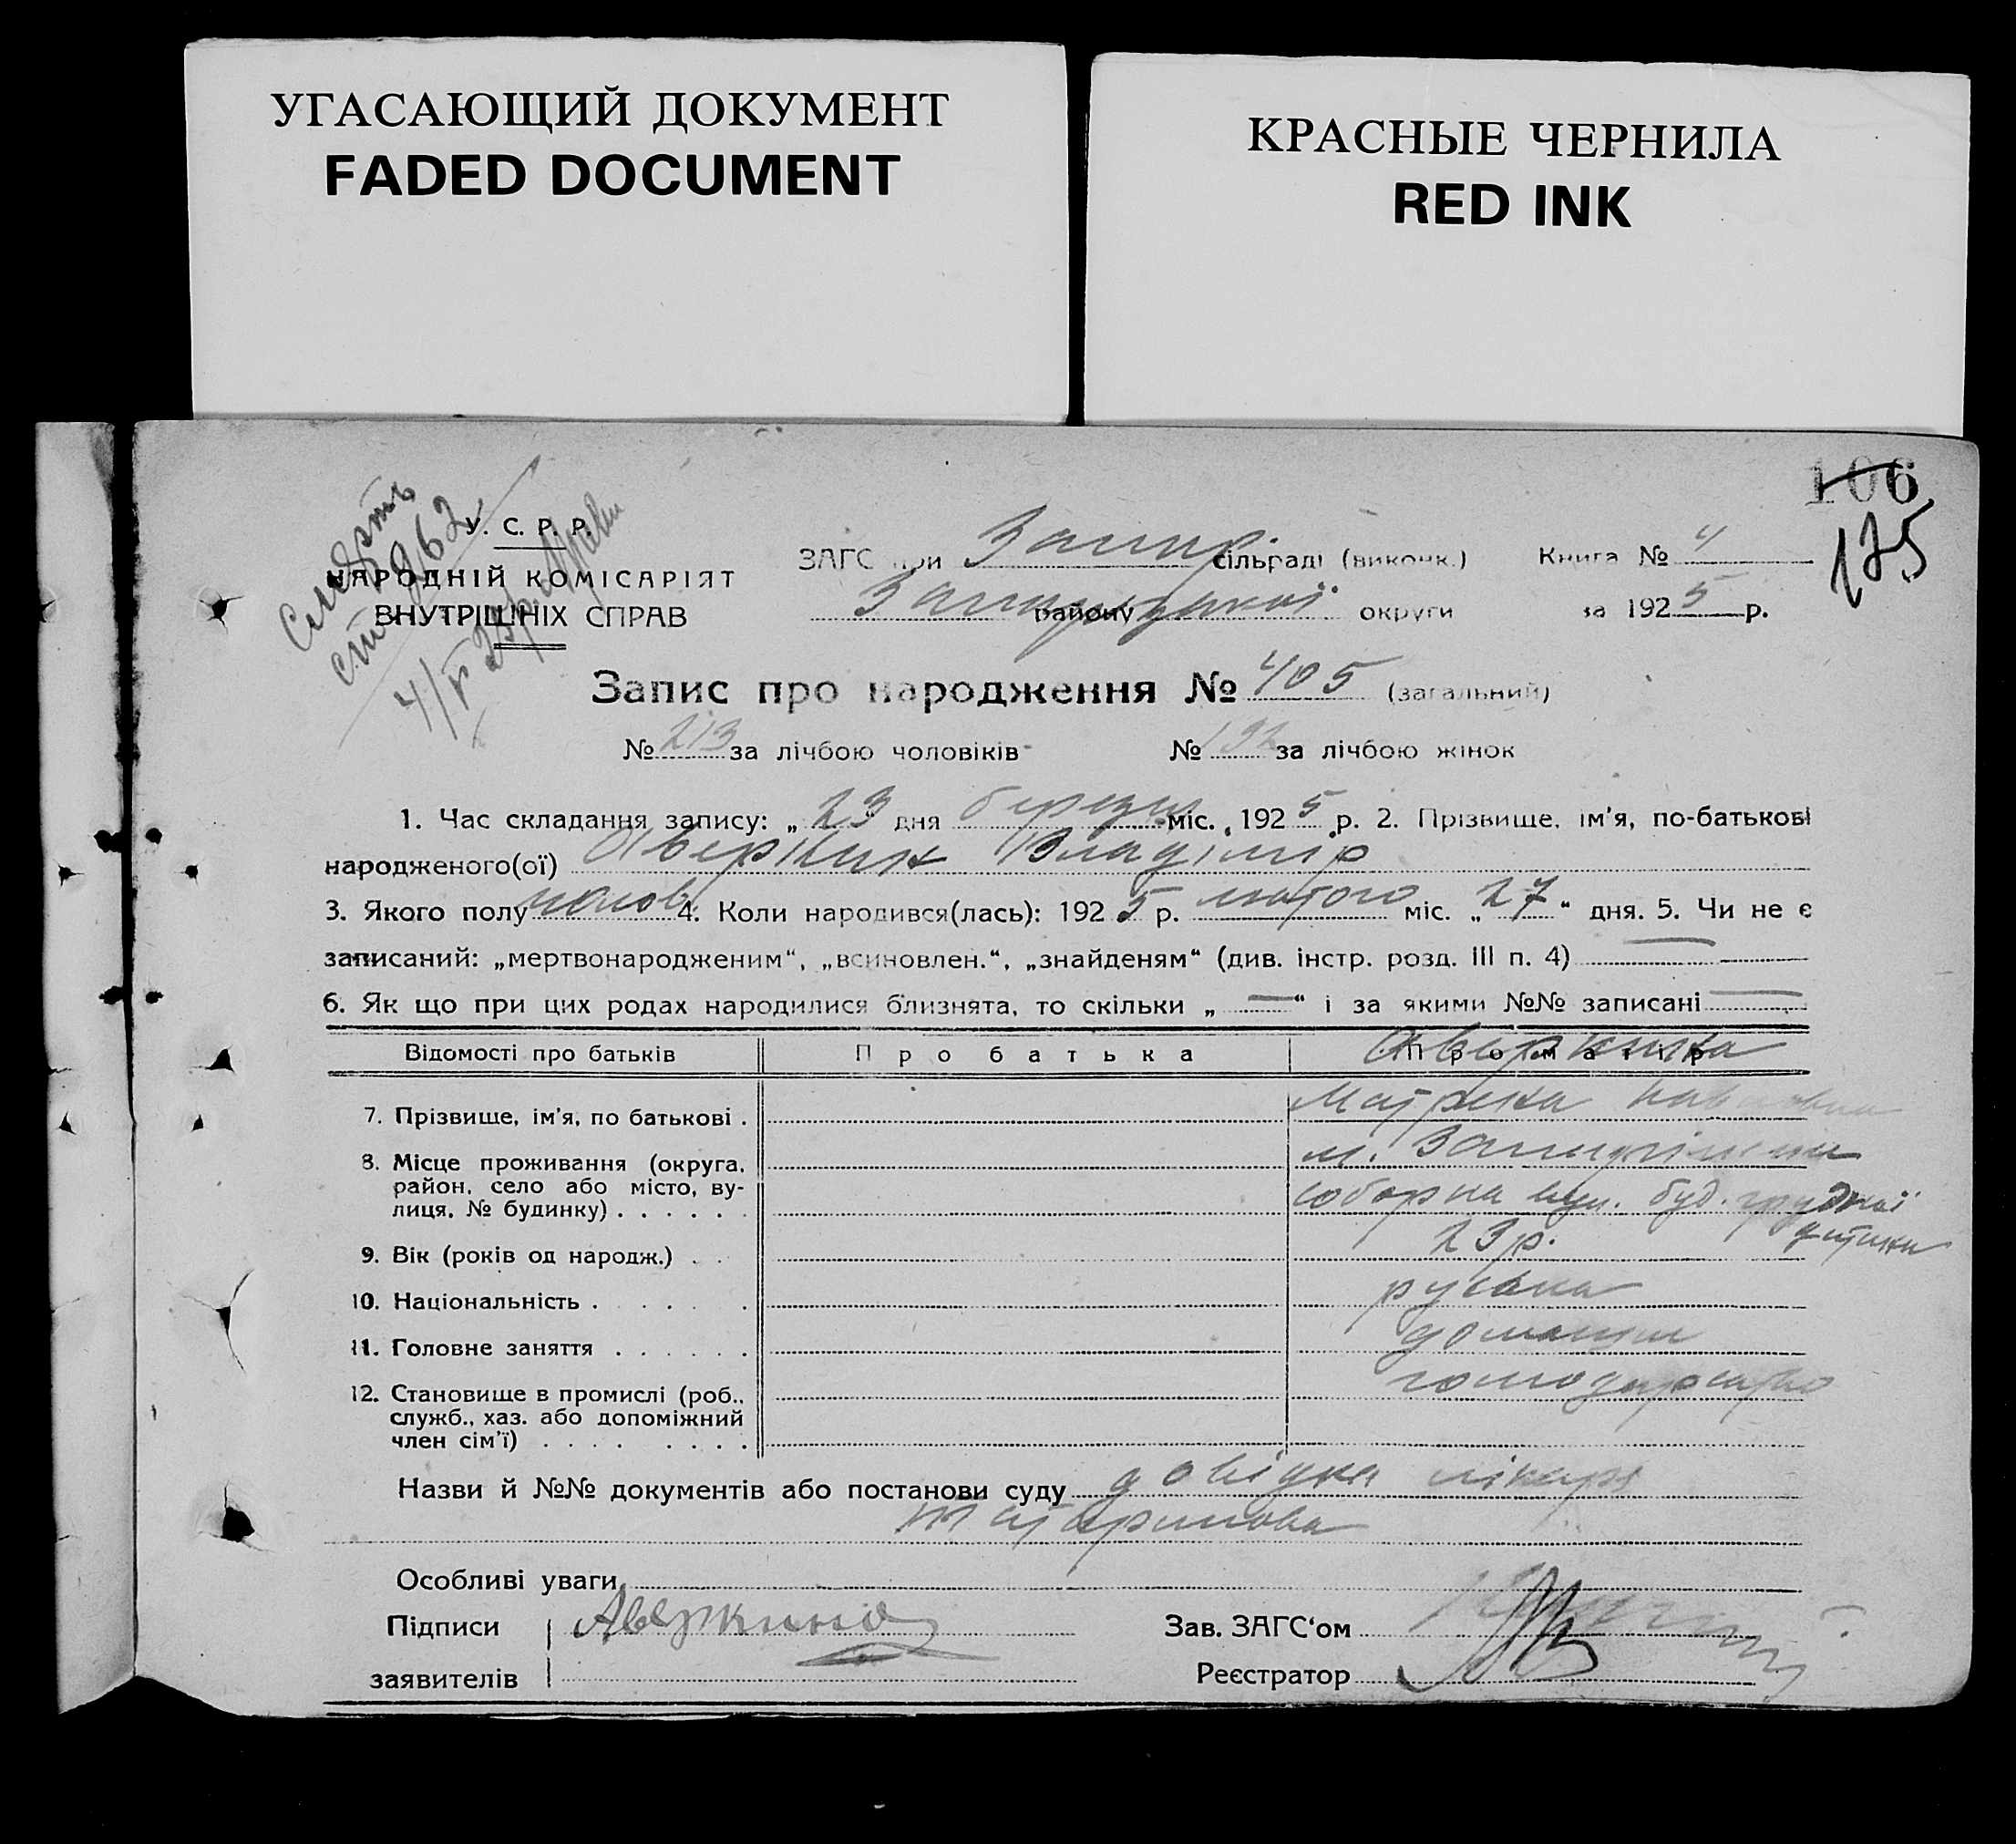 УГАСАЮЩИЙ ДОКУМЕНТ
FADED DOCUMENT
КРАСНЫЕ ЧЕРНИЛА
RED INK
106
175
Смерть
862
У. С. Р. Р.
НАРОДНІЙ КОМІСАРІЯТ
ВНУТРІШНІХ СПРАВ
ЗАГС при Запор. сільраді (виконк.) Книга № 4
району Запорізької округи за 1925 р.
Запис про народження № 405 (загальний)
№ 213 за лічбою чоловіків № 192 за лічбою жінок
1. Час складання запису: „ 23 дня березня міс. 1925 р. 2. Прізвище, ім'я, по-батькові
народженого(ої) Аверкин Владімір
3. Якого полу чолов 4. Коли народився(лась): 1925 р. лютого міс. „ 27 “ дня. 5. Чи не є
записаний: „мертвонародженим“, „всиновлен.“, „знайденям“ (див. інстр. розд. III п. 4) —
6. Як що при цих родах народилися близнята, то скільки „ — “ і за якими №№ записані —
Відомості про батьків Про батька Про матір
Аверкина
7. Прізвище, ім'я, по батькові . Матрена Павловна
8. Місце проживання (округа, м. Запоріжжя
район, село або місто, ву-
лиця, № будинку) . . . . . . Соборна вул. буд. грудної
дитини
9. Вік (років од народж.) . . 23 р.
10. Національність . . . . . . руська
11. Головне заняття . . . . . . домашнє
господарство
12. Становище в промислі (роб.,
служб., хаз. або допоміжний
член сім'ї) . . . . . . . .
Назви й №№ документів або постанови суду довідка лікаря
Татаринова
Особливі уваги
Підписи Аверкина Зав. ЗАГС‘ом
заявителів Реєстратор